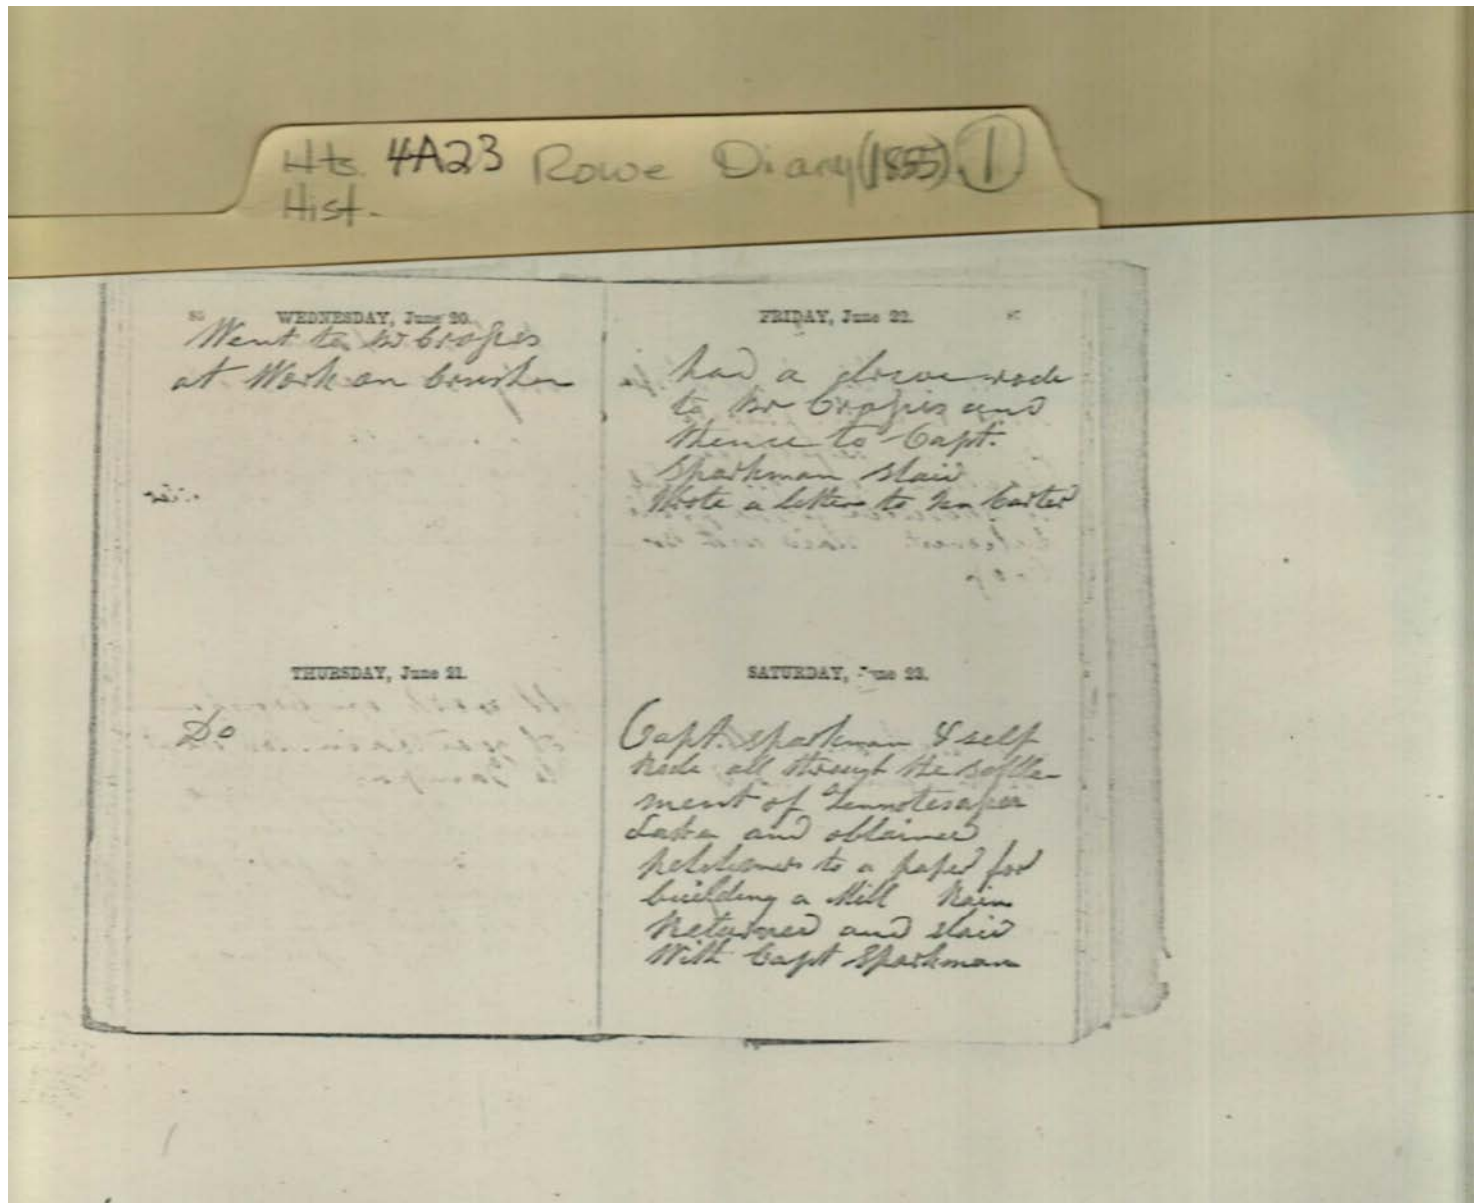 Hts. 4A23 Rowe Diary (1855) 1
Hist.
WEDNESDAY, June 20.
Went to Dr Crofses
at Work on
THURSDAY, June 21.
Do
FRIDAY, June 22.
had a rode
to Dr and
thence to Capt.
Sparkman staid
Wrote a letter to Carter
SATURDAY, June 23.
Capt. Sparkman & self
Rode all through the settle-
ment of
Lake and obtained
to a paper for
building a Mill Rain
Returned and staid
With Capt Sparkman